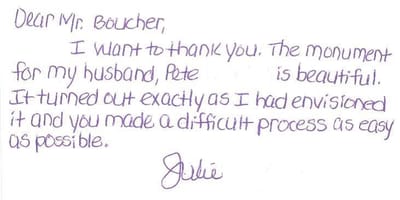 Dear Mr. Boucher,
I want to thank you. The monument
for my husband, Pete is beautiful.
It turned out exactly as I had envisioned
it and you made a difficult process as easy
as possible.
Julie